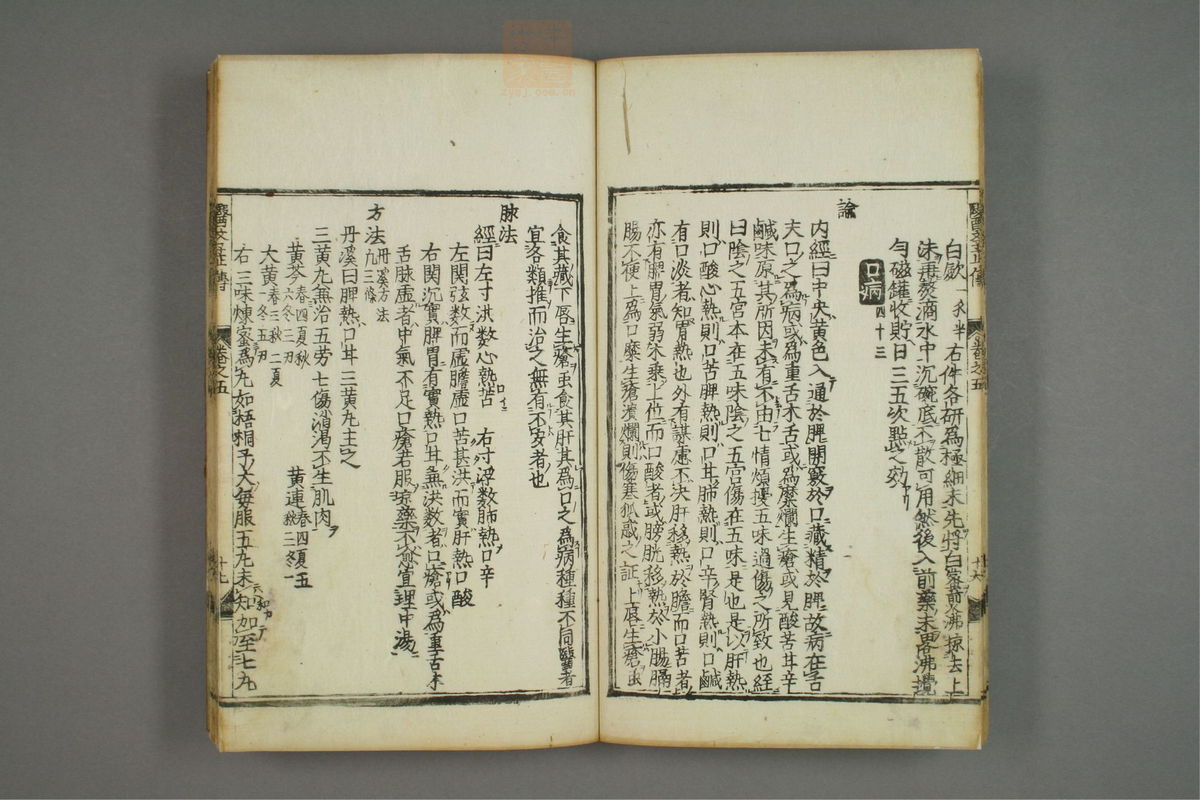 白蜜一兩半右件各研爲極細末先將白蜜煎沸掠去上
沫再熬滴水中沉碗底不散可用然後入前藥末畧沸攪
勻磁罐收貯日三五次點之効
口病四十三
論
內經曰中央黃色入通於脾開竅於口藏精於脾故病在舌
夫口之爲病或爲重舌木舌或爲糜爛生瘡或見酸苦甘辛
鹹味原其所因未有不由七情煩擾五味過傷之所致也經
曰陰之五宮本在五味陰之五宮傷在五味是也是以肝熱
則口酸心熱則口苦脾熱則口甘肺熱則口辛腎熱則口鹹
有口淡者知胃熱也外有謀慮不決肝移熱於膽而口苦者
亦有脾胃氣弱木乘上位而口酸者或膀胱移熱於小腸膈
腸不便上爲口糜生瘡潰爛則傷寒狐惑之証上唇生瘡虫
食其藏下唇生瘡虫食其肝其爲口之爲病種種不同醫者
宜各類推而治之無有不安者也
脉法
經曰左寸洪數心熱苦 右寸浮數肺熱口辛
左関弦數而虛膽虛口苦甚洪而實肝熱口酸
右関沉實脾胃有實熱口甘兼洪數者口瘡或爲重舌木
舌脉虛者中氣不足口瘡若服凉藥不愈宜理中湯
方法丹溪方法九三條
丹溪曰脾熱口甘三黃丸主之
三黃丸無治五劳七傷消渴不生肌肉
黃芩春四夏秋六冬三刃 黃連春四夏五秋三冬一
大黃春三秋二夏一冬五刃
右三味煉蜜爲丸如梧桐子大每服五丸未知加至七丸
卷之五
十六
卷之五
十七